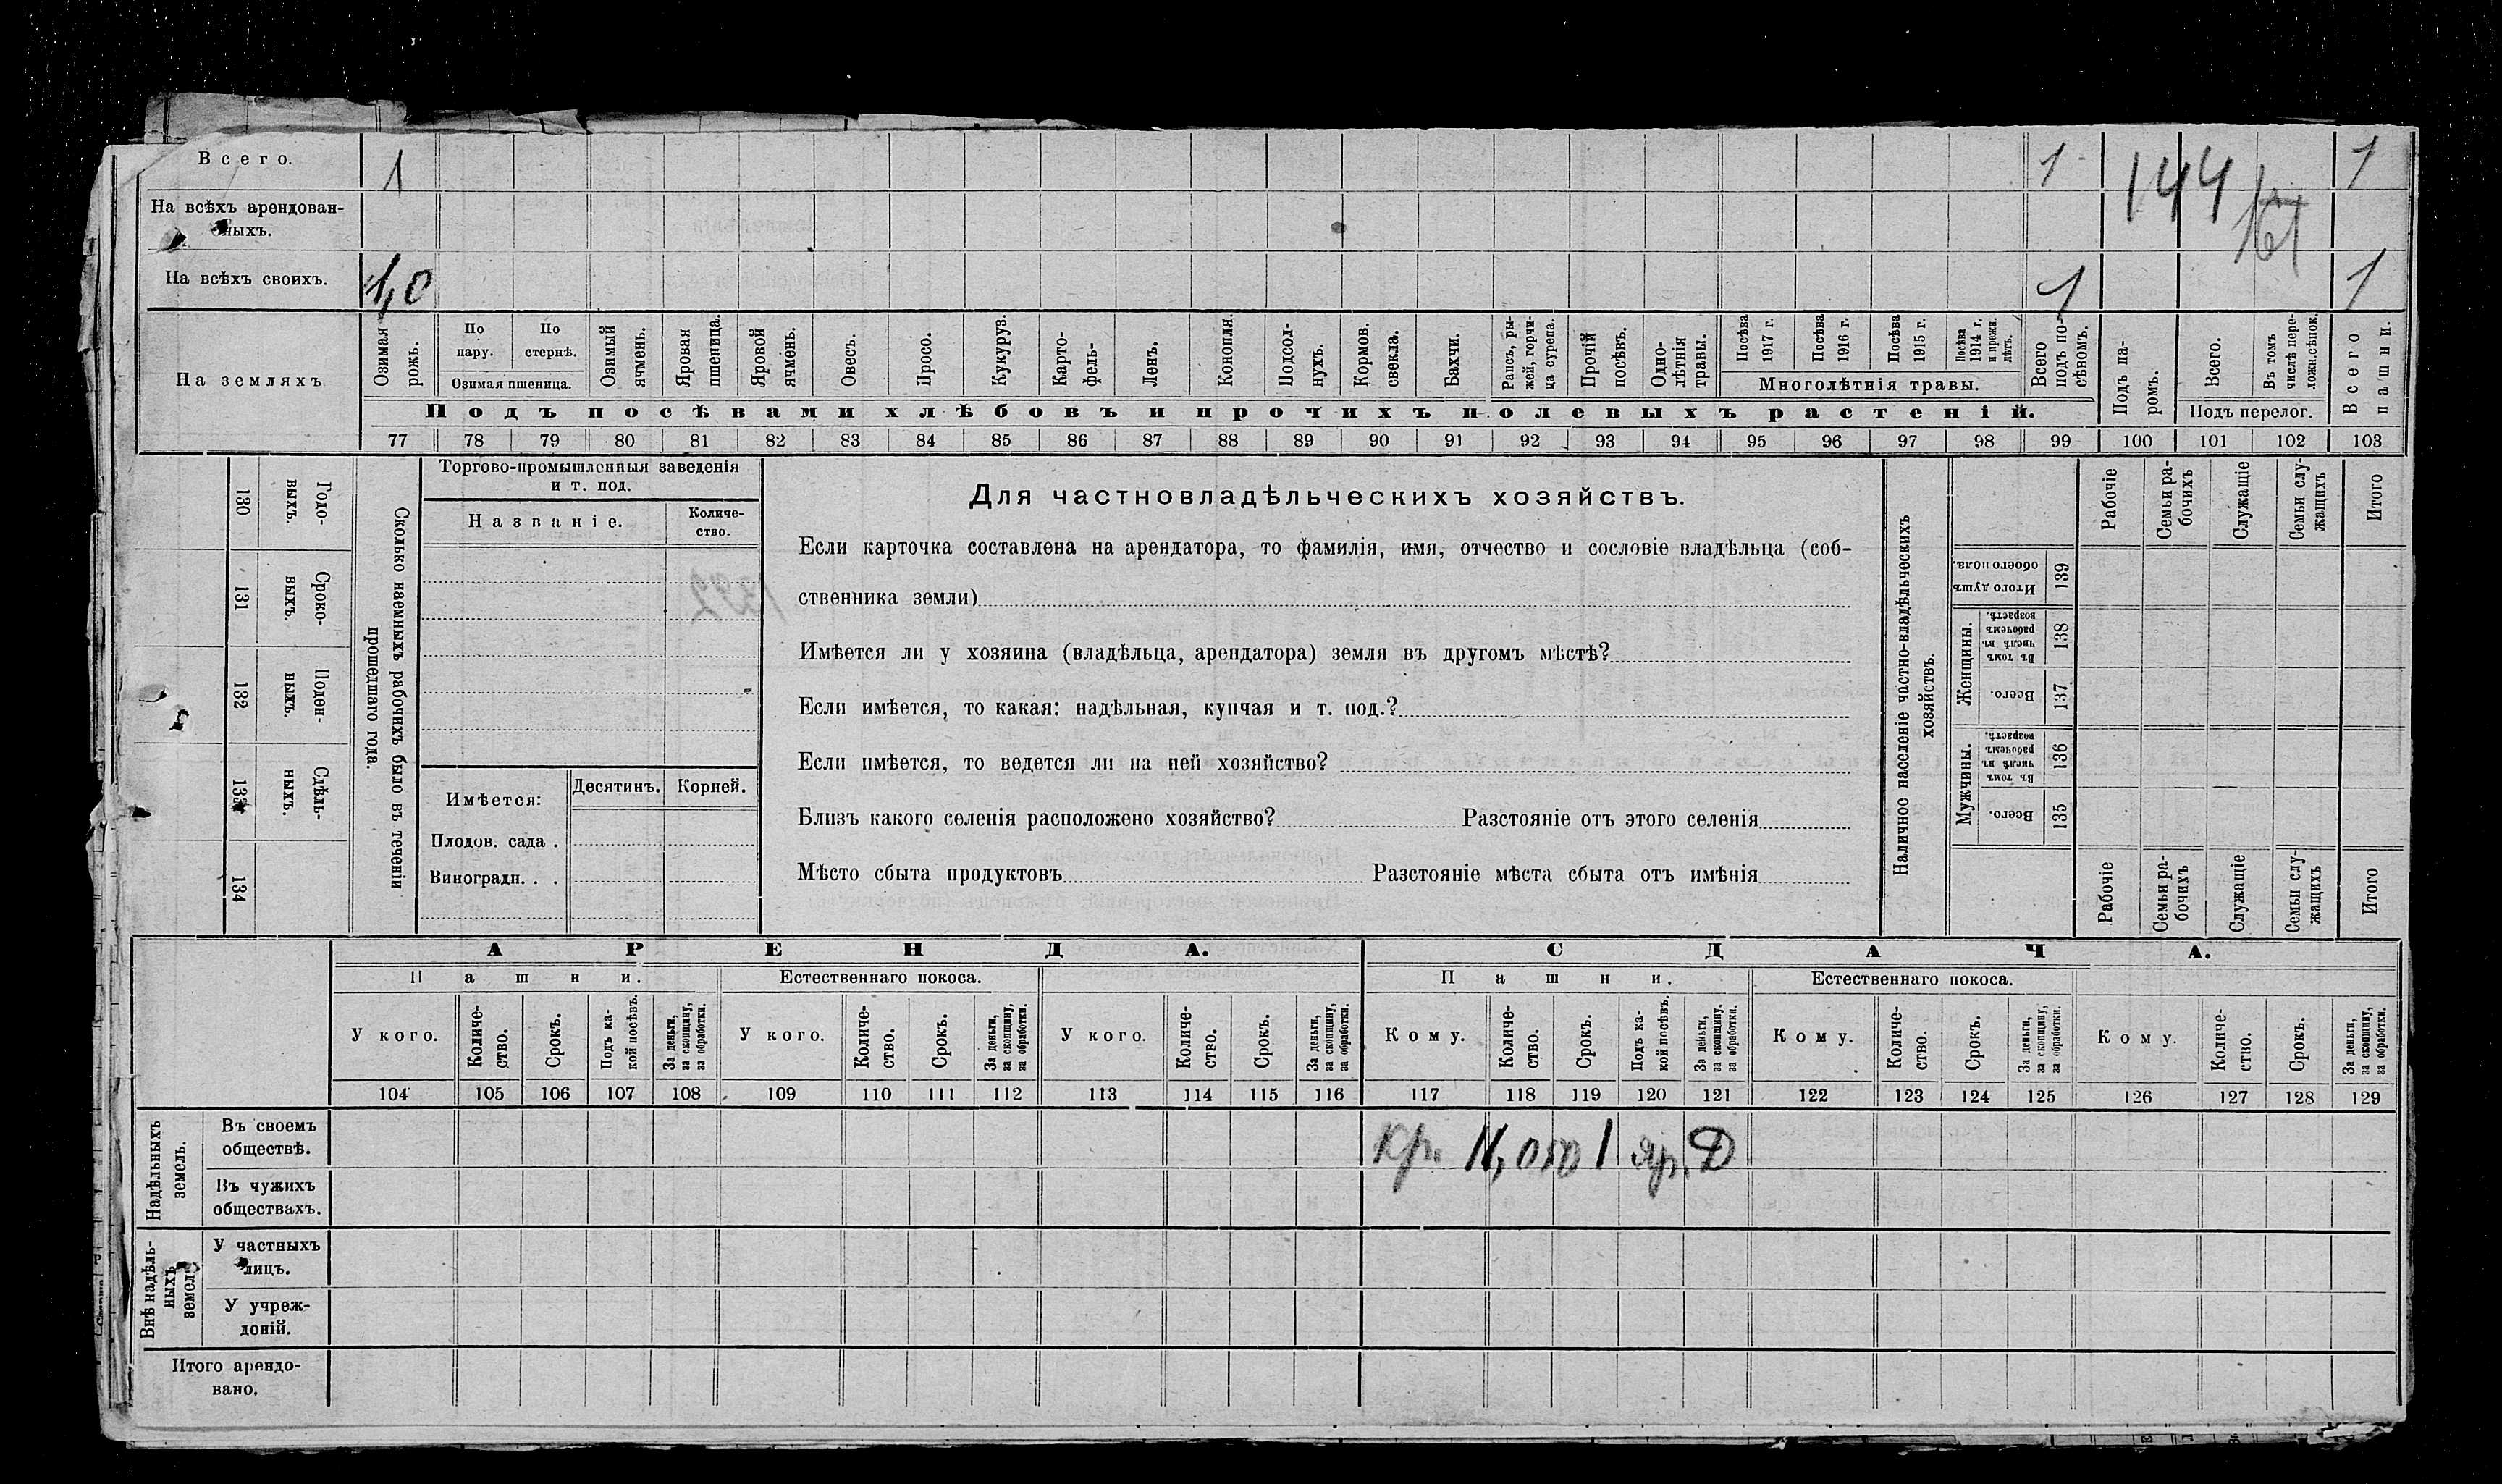 Всего. 1 1 144 1
На всѣхъ арендован-
ныхъ. 161
На всѣхъ своихъ. 1,0 1 1
На земляхъ
Озимая рожь.
По пару.
По стернѣ.
Озимая пшеница.
Озимый ячмень.
Яровая пшеница.
Яровой ячмень.
Овесъ.
Просо.
Кукуруз.
Карто-
фель-
Ленъ.
Конопля.
Подсол-
нухъ.
Кормов. свекла.
Бахчи.
Рапсъ, ры-
жей, горчи-
ца сурепа.
Прочій посѣвъ.
Одно-
лѣтнія травы.
Посѣва 1917 г.
Посѣва 1916 г.
Посѣва 1915 г.
Посѣва 1914 г. и прежн. лѣтъ.
Многолѣтнія травы.
Всего подъ по-
сѣвомъ.
Подъ па-
ромъ.
Всего.
Въ томъ числѣ пере-
ложн.сѣнок.
Подъ перелог.
Всего пашни.
Подъ посѣвами хлѣбовъ и прочихъ полевыхъ растеній.
77 78 79 80 81 82 83 84 85 86 87 88 89 90 91 92 93 94 95 96 97 98 99 100 101 102 103
130 Годо-
выхъ.
131 Сроко-
выхъ.
132 Поден-
ныхъ.
133 Сдѣль-
ныхъ.
134
Сколько наемныхъ рабочихъ было въ теченіи
прошедшаго года.
Торгово-промышленныя заведенія
и т. под.
Названіе.
Количе-
ство.
Имѣется: Десятинъ. Корней.
Плодов. сада .
Виноградн. . .
Для частновладѣльческихъ хозяйствъ.
Если карточка составлена на арендатора, то фамилія, имя, отчество и сословіе владѣльца (соб-
ственника земли)
Имѣется ли у хозяина (владѣльца, арендатора) земля въ другомъ мѣстѣ?
Если имѣется, то какая: надѣльная, купчая и т. под.?
Если имѣется, то ведется ли на ней хозяйство?
Близъ какого селенія расположено хозяйство? Разстояніе отъ этого селенія
Мѣсто сбыта продуктовъ Разстояніе мѣста сбыта отъ имѣнія
Наличное населеніе частно-владѣльческихъ
хозяйствъ.
Рабочіе
Семьи ра-
бочихъ
Служащіе
Семьи слу-
жащихъ
Итого
Итого душъ обоего пола. 139
Женщины.
Въ томъ числѣ въ рабочемъ возрастѣ. 138
Всего. 137
Мужчины.
Въ томъ числѣ въ рабочемъ возрастѣ. 136
Всего. 135
Рабочіе
Семьи ра-
бочихъ
Служащіе
Семьи слу-
жащихъ
Итого
АРЕНДА. СДАЧА.
Пашни. Естественнаго покоса. Пашни. Естественнаго покоса.
У кого.
Количе-
ство.
Срокъ.
Подъ ка-
кой посѣвъ.
За деньги, за скопщину, за обработки.
У кого.
Количе-
ство.
Срокъ.
За деньги, за скопщину, за обработки.
У кого.
Количе-
ство.
Срокъ.
За деньги, за скопщину, за обработки.
Кому.
Количе-
ство.
Срокъ.
Подъ ка-
кой посѣвъ.
За деньги, за скопщину, за обработки.
Кому.
Количе-
ство.
Срокъ.
За деньги, за скопщину, за обработки.
Кому.
Количе-
ство.
Срокъ.
За деньги, за скопщину, за обработки.
104 105 106 107 108 109 110 111 112 113 114 115 116 117 118 119 120 121 122 123 124 125 126 127 128 129
Надѣльныхъ земель.
Въ своемъ
обществѣ. Кр. 1 яр. Д
Въ чужихъ
обществахъ.
Внѣ надѣль-
ныхъ земель.
У частныхъ
лицъ.
У учреж-
деній.
Итого арендо-
вано.